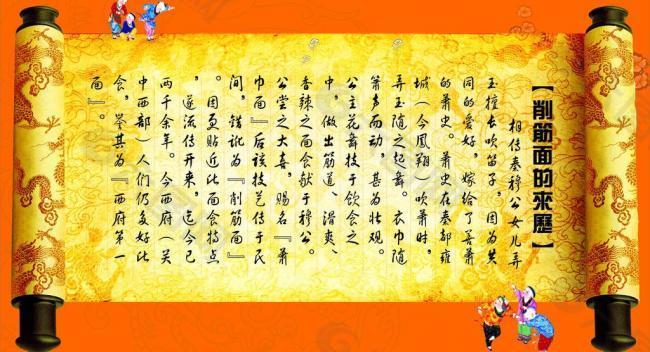 【削筋面的来历】
相传秦穆公女儿弄
玉擅长吹笛子，因为共
同的爱好，嫁给了善箫
的萧史。萧史在秦都雍
城（今凤翔）吹箫时，
弄玉随之起舞。衣巾随
箫声而动，甚为壮观。
公主花舞技于饮食之
中，做出筋道、滑爽、
香辣之面食献于穆公。
公尝之大喜，赐名『萧
巾面』后该技艺传于民
间，错讹为『削筋面』
。因更贴近此面食特点
，遂流传开来，迄今已
两千余年。今西府（关
中西部）人们仍多好此
食，誉其为『西府第一
面』。